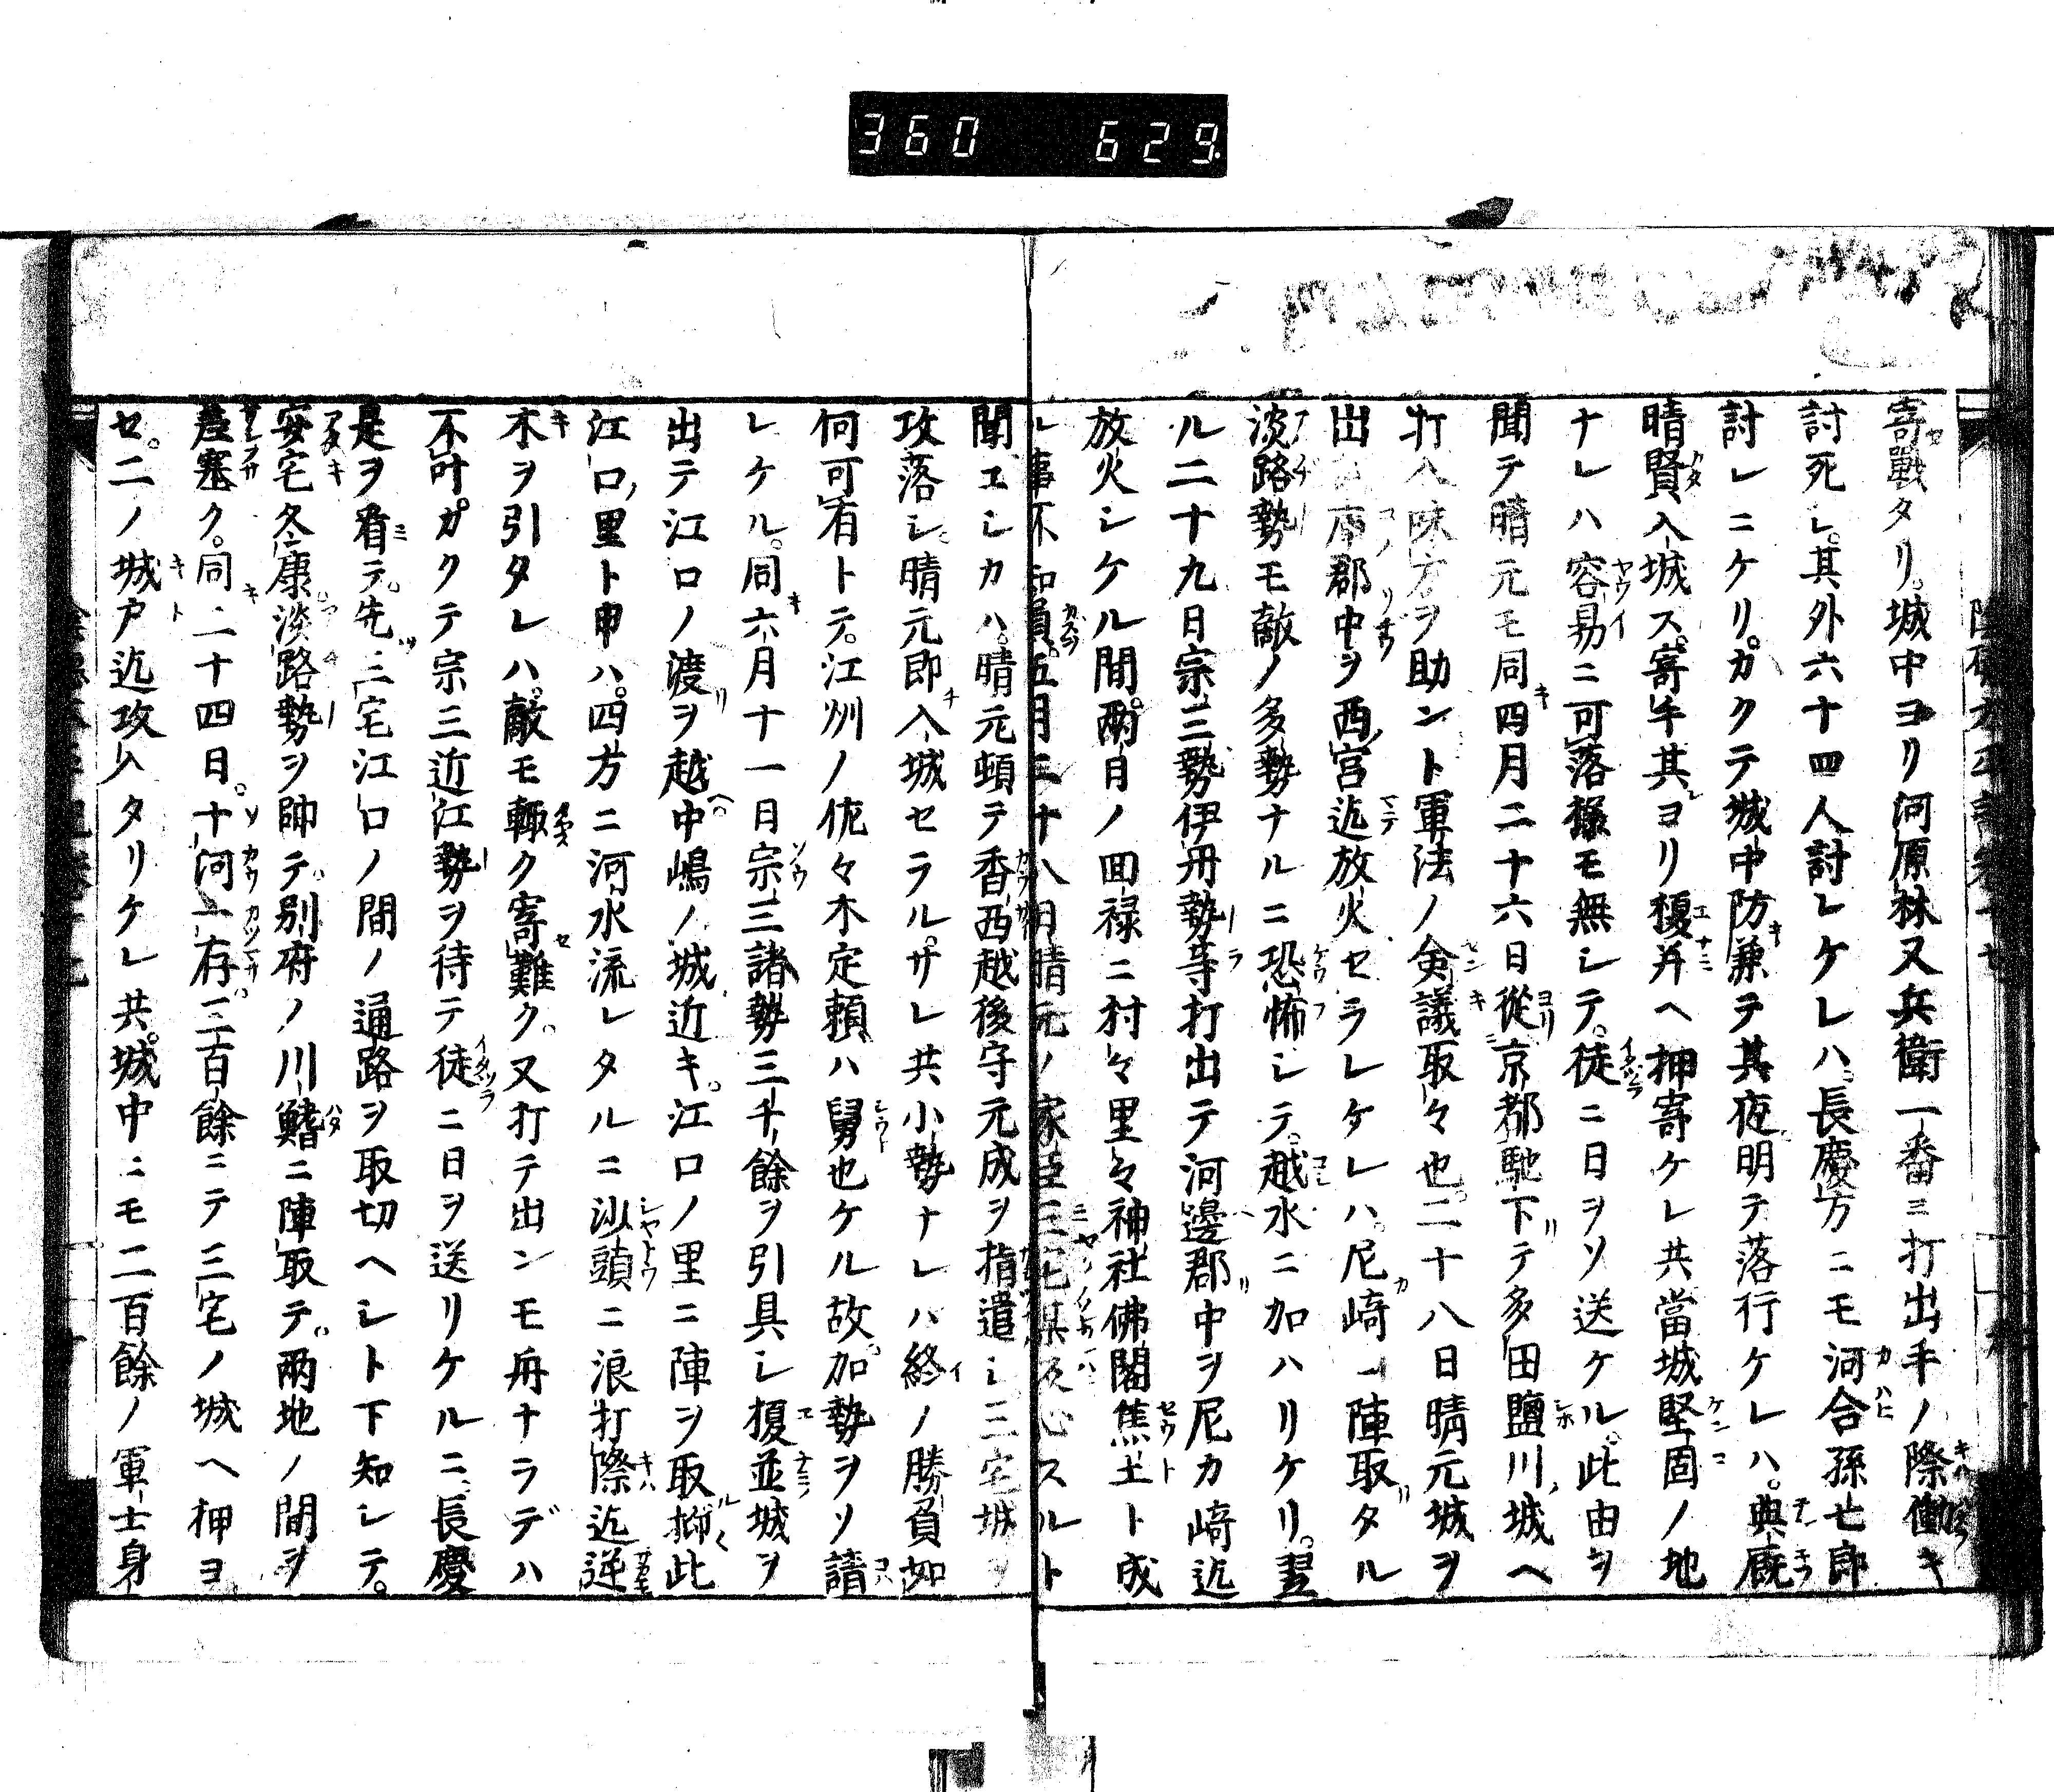 360 629
寄戰タリ。城中ヨリ河原林又兵衛一番ニ打出手ノ際働キ
討死シ。其外六十四人討レケレハ。長慶方ニモ河合孫七郎
討レニケリ。カクテ城中防兼テ其夜明テ落行ケレハ。典厩
晴賢入城ス。寄手其ヨリ榎并ヘ押寄ケレ共當城堅固ノ地
ナレハ容易ニ可落樣モ無シテ。徒ニ日ヲソ送ケル。此由ヲ
聞テ晴元モ同四月二十六日從京都馳下テ多田鹽川城ヘ
打入味方ヲ助ント軍法ノ僉議取々也。二十八日晴元城ヲ
出 郡中ヲ西宮迄放火セラレケレハ。尼崎ニ陣取タル
淡路勢モ敵ノ多勢ナルニ恐怖シテ。越水ニ加ハリケリ。翌
ル二十九日宗三勢伊丹勢等打出テ河邊郡中ヲ尼カ崎迄
放火シケル間。兩日ノ回禄ニ村々里々神社佛閣焦土ト成
ル事不知員。五月二十八日晴元ノ家臣三宅某反心スルト
聞エシカハ。晴元頓テ香西越後守元成ヲ指遣シ三宅城ヲ
攻落シ。晴元即入城セラル。サレ共小勢ナレハ終ノ勝負如
何可有トテ。江州ノ佐々木定頼ハ舅也ケル故。加勢ヲソ請
レケル。同六月十一日宗三諸勢三千餘ヲ引具シ榎並城ヲ
出テ江口ノ渡ヲ越中嶋ノ城近キ。江口ノ里ニ陣ヲ取抑此
江口ノ里ト申ハ。四方ニ河水流レタルニ沙頭ニ浪打際迄逆
木ヲ引タレハ。敵モ輙ク寄難ク。又打テ出ンモ舟ナラデハ
不叶。カクテ宗三近江勢ヲ待テ徒ニ日ヲ送リケルニ。長慶
是ヲ看テ。先三宅江口ノ間ノ通路ヲ取切ヘシト下知シテ。
安宅冬康淡路勢ヲ帥テ別府ノ川鰭ニ陣取テ。兩地ノ間ヲ
差塞ク。同二十四日。十河一存。三百餘ニテ三宅ノ城ヘ押ヨ
セ。二ノ城戸迄攻入タリケレ共。城中ニモ二百餘ノ軍士身